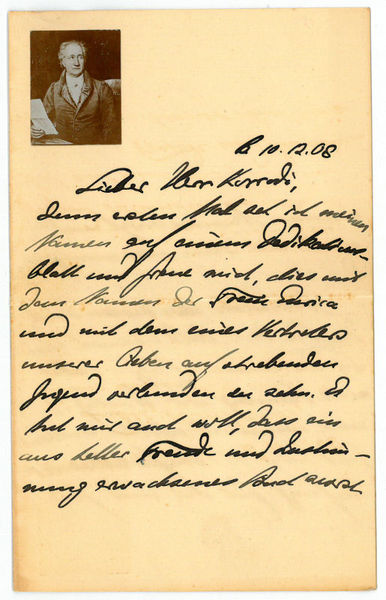 B 10.12.08
Lieber Herr Korrodi,
zum ersten Mal seh ich meinen
Namen auf einem Dedikations-
blatt und freue mich, dies mit
dem Namen der Frau
und mit dem eines Vertreters
unserer lieben aufstrebenden
Jugend verbunden zu sehn. Es
tut mir auch wohl, dass ein
aus heller Freude und Zustim-
mung erwachsenes Buch zuerst